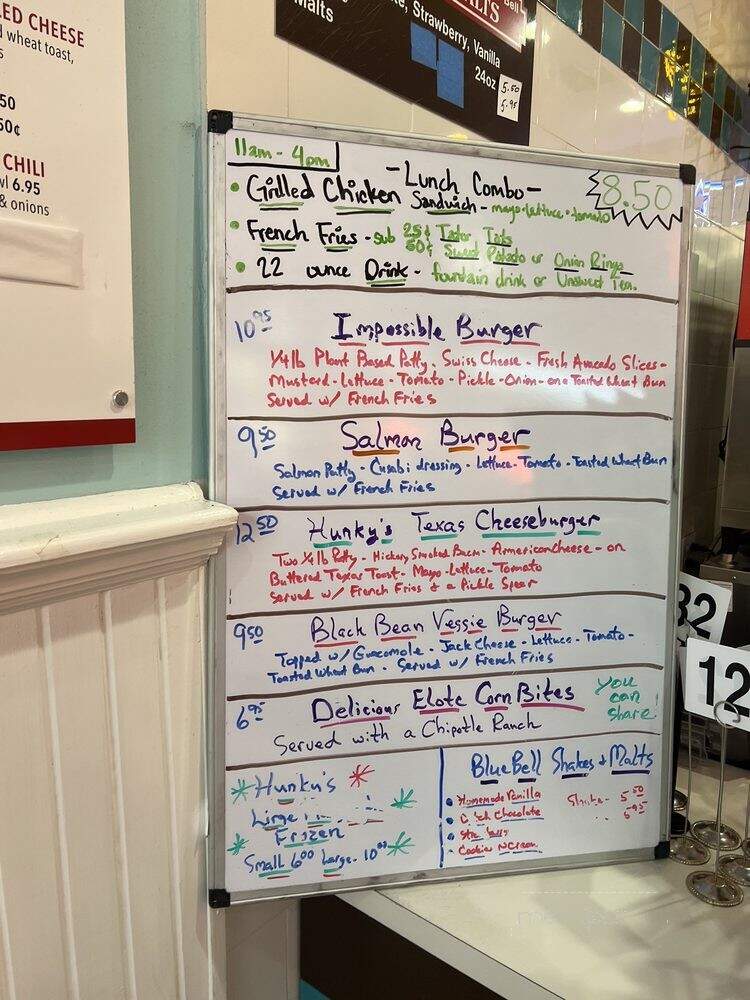 LED CHEESE
d wheat toast,
50
50¢
CHILI
wl 6.95
& onions
Malts
ke, Strawberry, Vanilla
24oz
5.50
5.95
Bell
ALTS
11am - 4pm
-Lunch Combo-
8.50
• Grilled Chicken Sandwich - mayo · lettuce · tomato
• French Fries - sub 25¢ Tator Tots
50¢ Sweet Potato or Onion Rings
• 22 ounce Drink - fountain drink or Unsweet Tea.
10.95 Impossible Burger
1/4 lb Plant Based Patty, Swiss Cheese - Fresh Avocado Slices -
Mustard - Lettuce - Tomato - Pickle - Onion - on a Toasted Wheat Bun
Served w/ French Fries
9.50 Salmon Burger
Salmon Patty - Cusabi dressing - Lettuce - Tomato - Toasted Wheat Bun
Served w/ French Fries
12.50 Hunky's Texas Cheeseburger
Two 1/4 lb Patty - Hickory Smoked Bacon - American Cheese - on
Buttered Texas Toast - Mayo - Lettuce - Tomato
Served w/ French Fries & a Pickle Spear
9.50 Black Bean Veggie Burger
Topped w/ Guacamole - Jack Cheese - Lettuce - Tomato -
Toasted Wheat Bun - Served w/ French Fries
6.95 Delicious Elote Corn Bites
You can share!
Served with a Chipotle Ranch
Hunky's
Frozen
Small 6.00 Large - 10.00
Blue Bell Shakes & Malts
• Homemade Vanilla
• Chocolate
• Cookies N Cream
Shake - 5.50
5.95
32
12